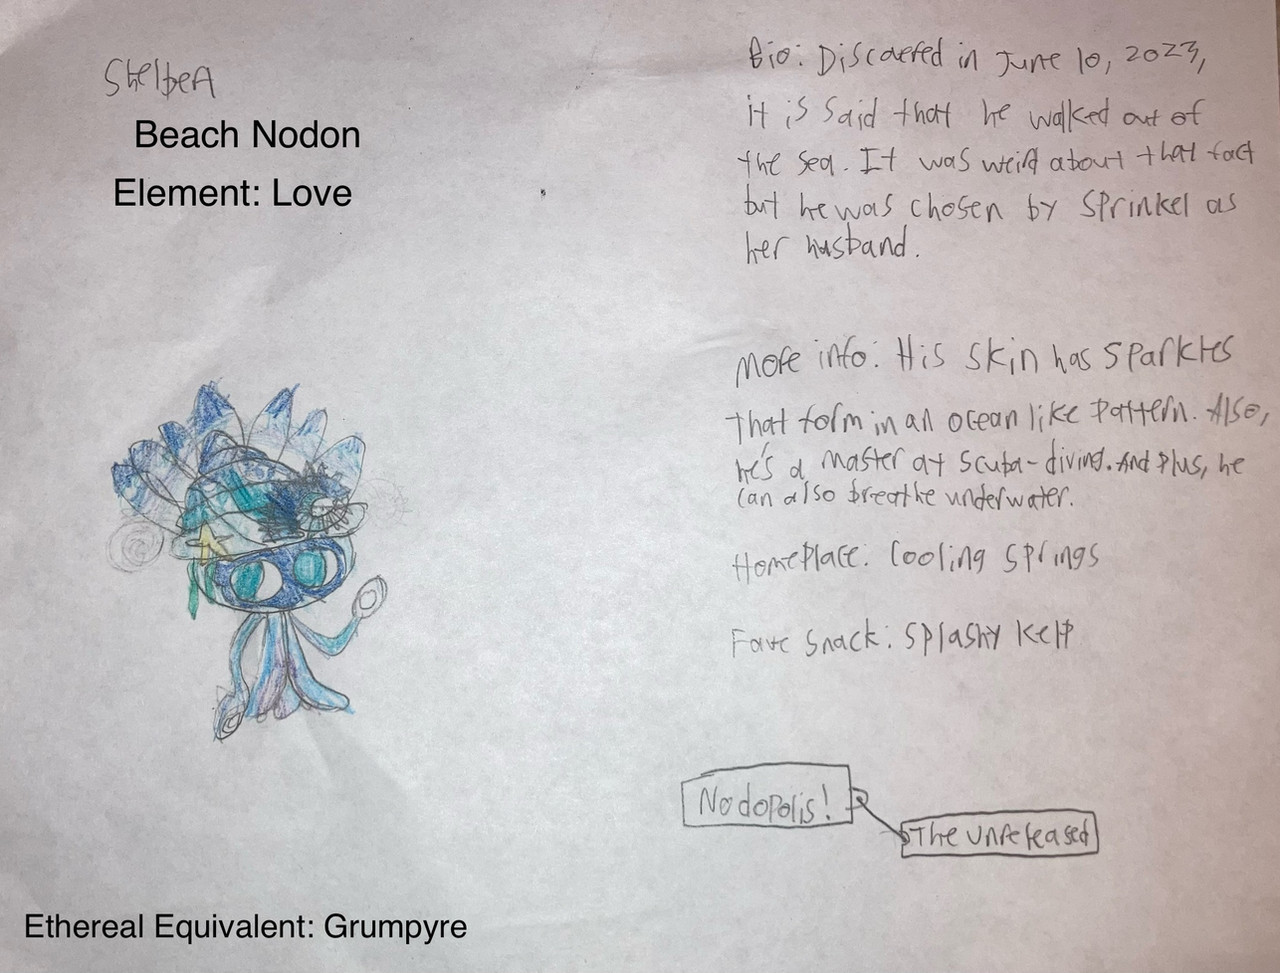 ShelbeA
Beach Nodon
Element: Love
Bio: Discovered in June 10, 2023,
it is said that he walked out of
the sea. It was weird about that fact
but he was chosen by Sprinkel as
her husband.
More info: His skin has sparkles
that form in an ocean like pattern. Also,
he's a master at scuba-diving. And plus, he
can also breathe underwater.
Homeplace: Cooling Springs
Fave Snack: Splashy Kelp
Nodopolis!
The Unreleased
Ethereal Equivalent: Grumpyre